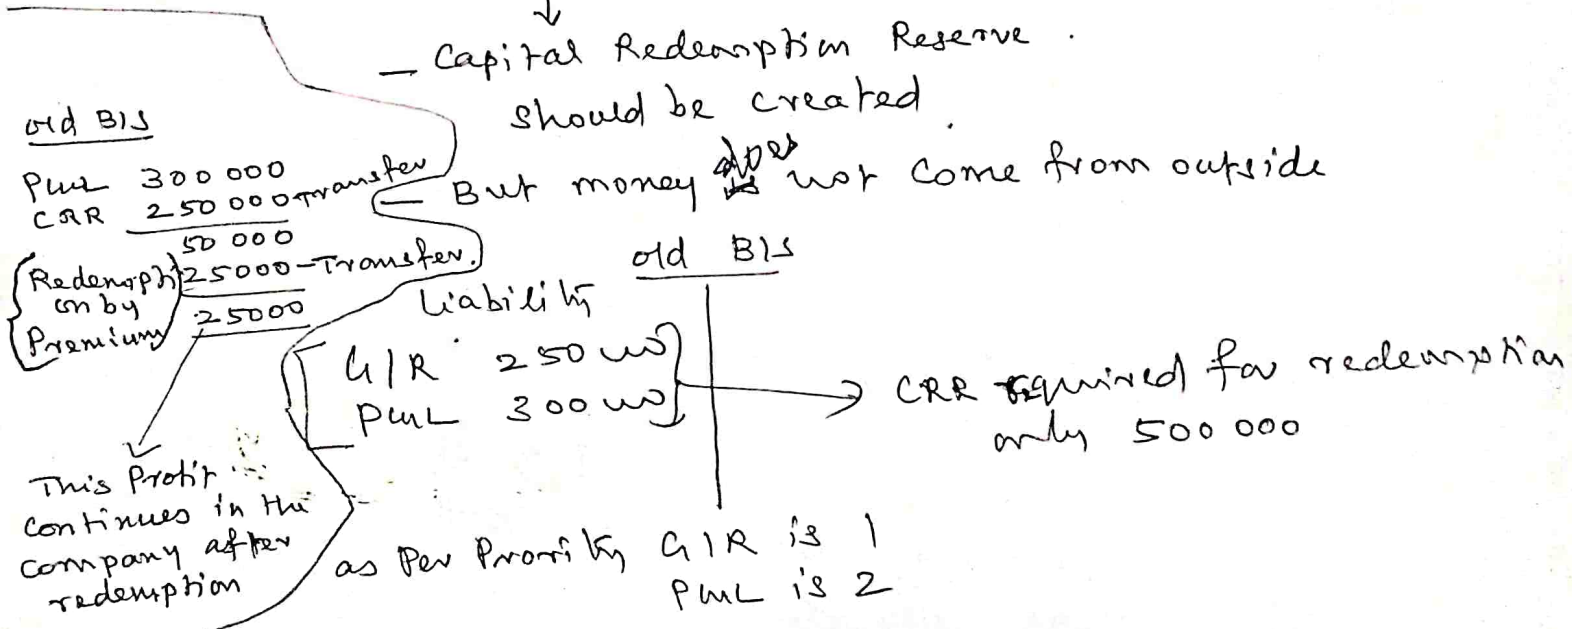 - Capital Redemption Reserve .
should be created
- But money does not come from outside
old B/S
P&L 300 000
CRR 250 000 Transfer
50 000
Redempti 25000 - Transfer.
on by
Premium 25000
This Profit
continues in the
company after
redemption
old B/S
Liability
G/R 250 000
P&L 300 000
CRR required for redemption
only 500 000
as Per Priority G/R is 1
P&L is 2